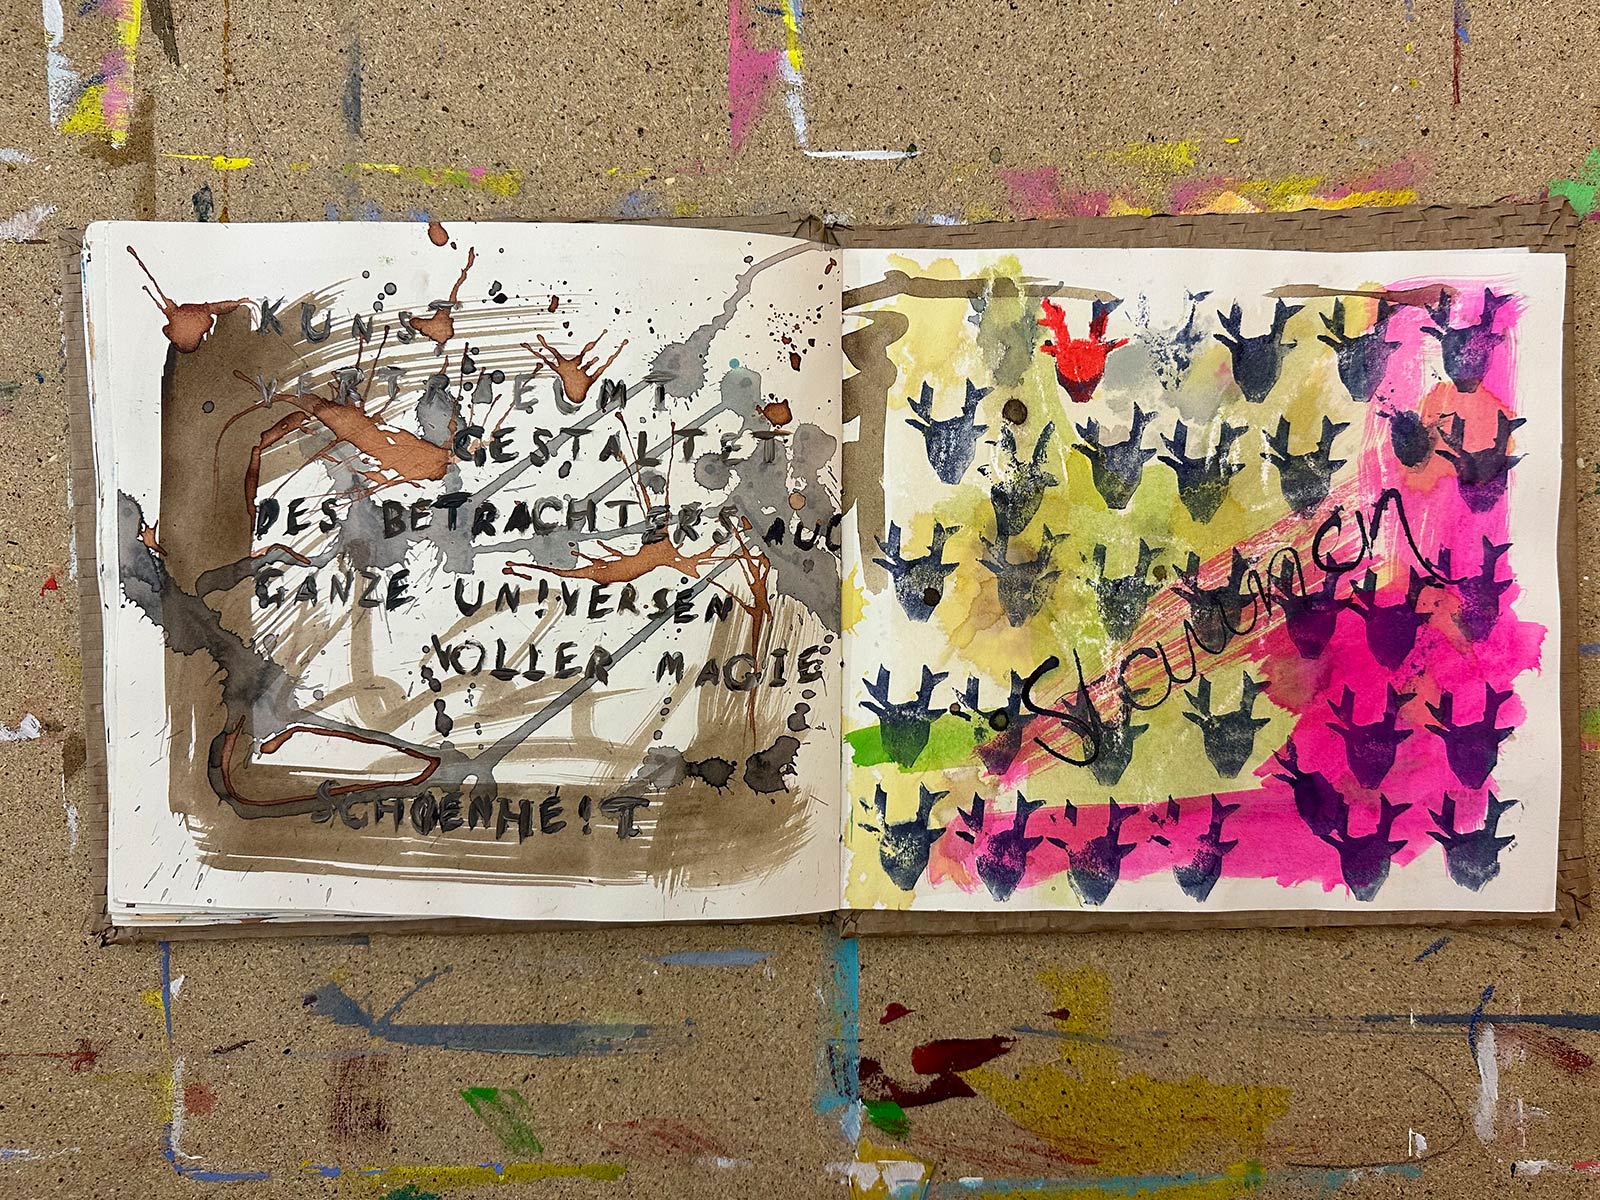 KUNST
VERTRAEUMT
GESTALTET
DES BETRACHTERS AUG
GANZE UN!VERSEN
VOLLER MAGIE
SCHOENHE!T